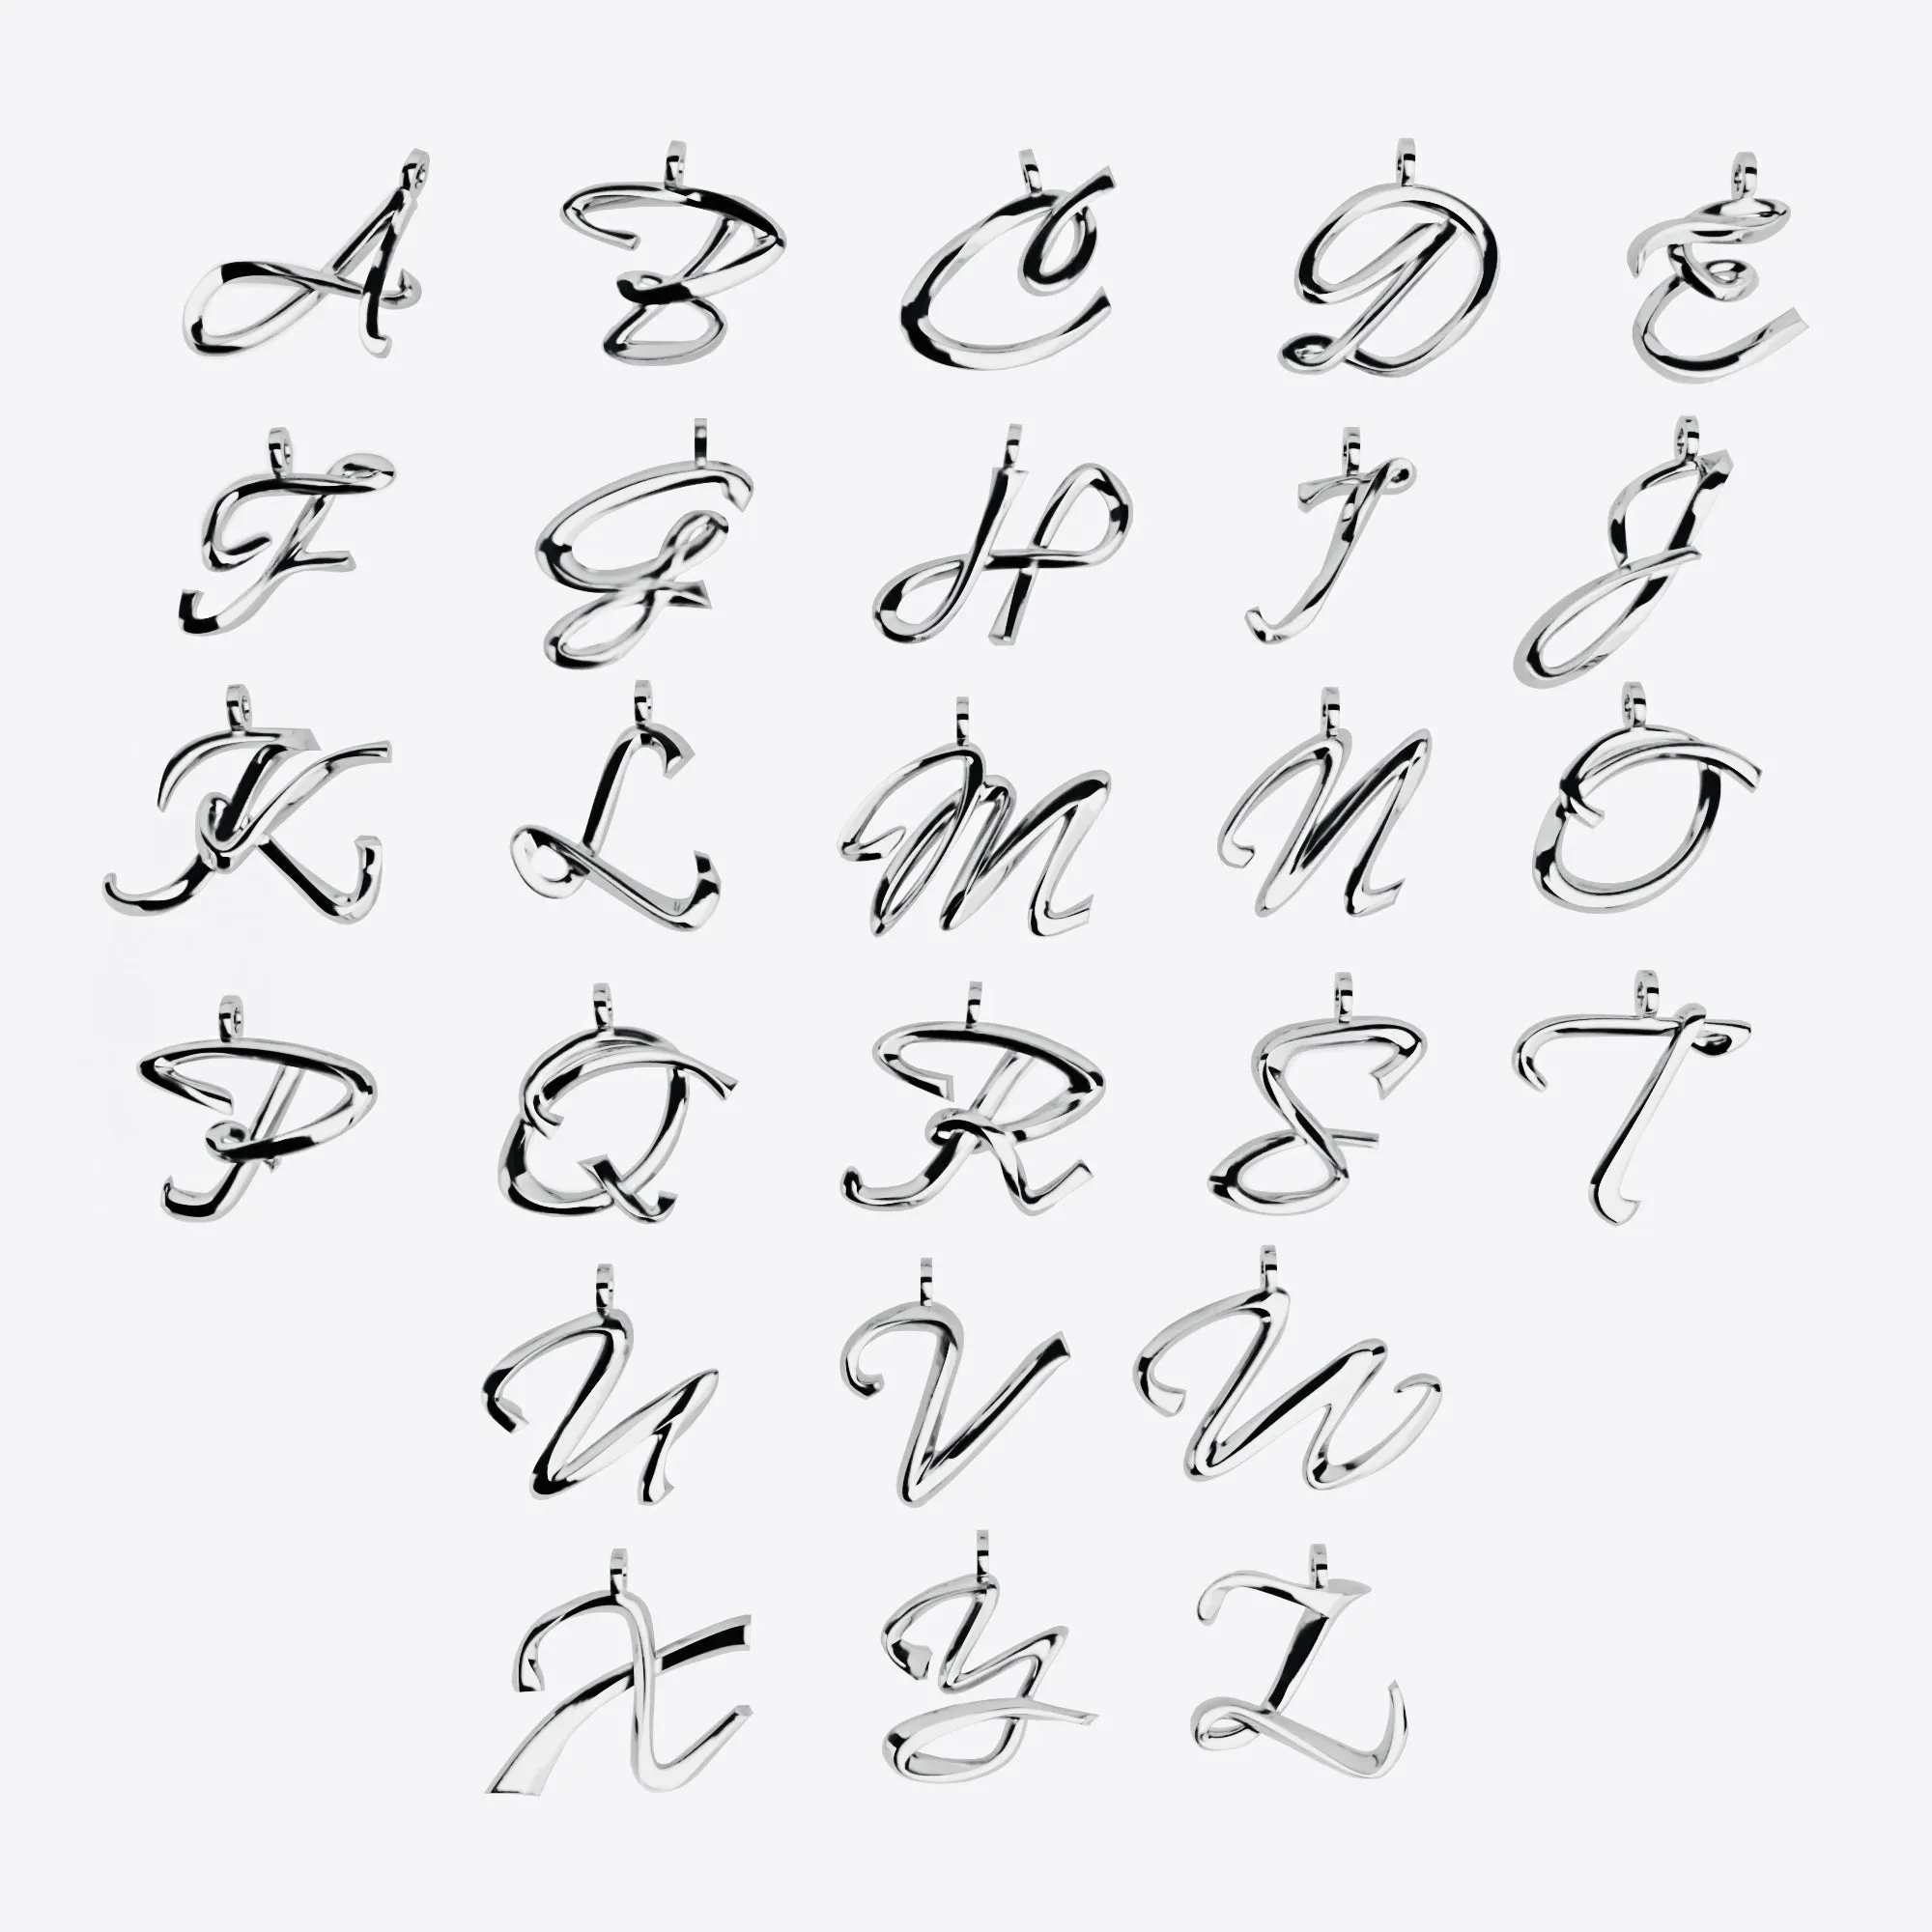 A B C D E
F G H I J
K L M N O
P Q R S T
U V W
X Y Z